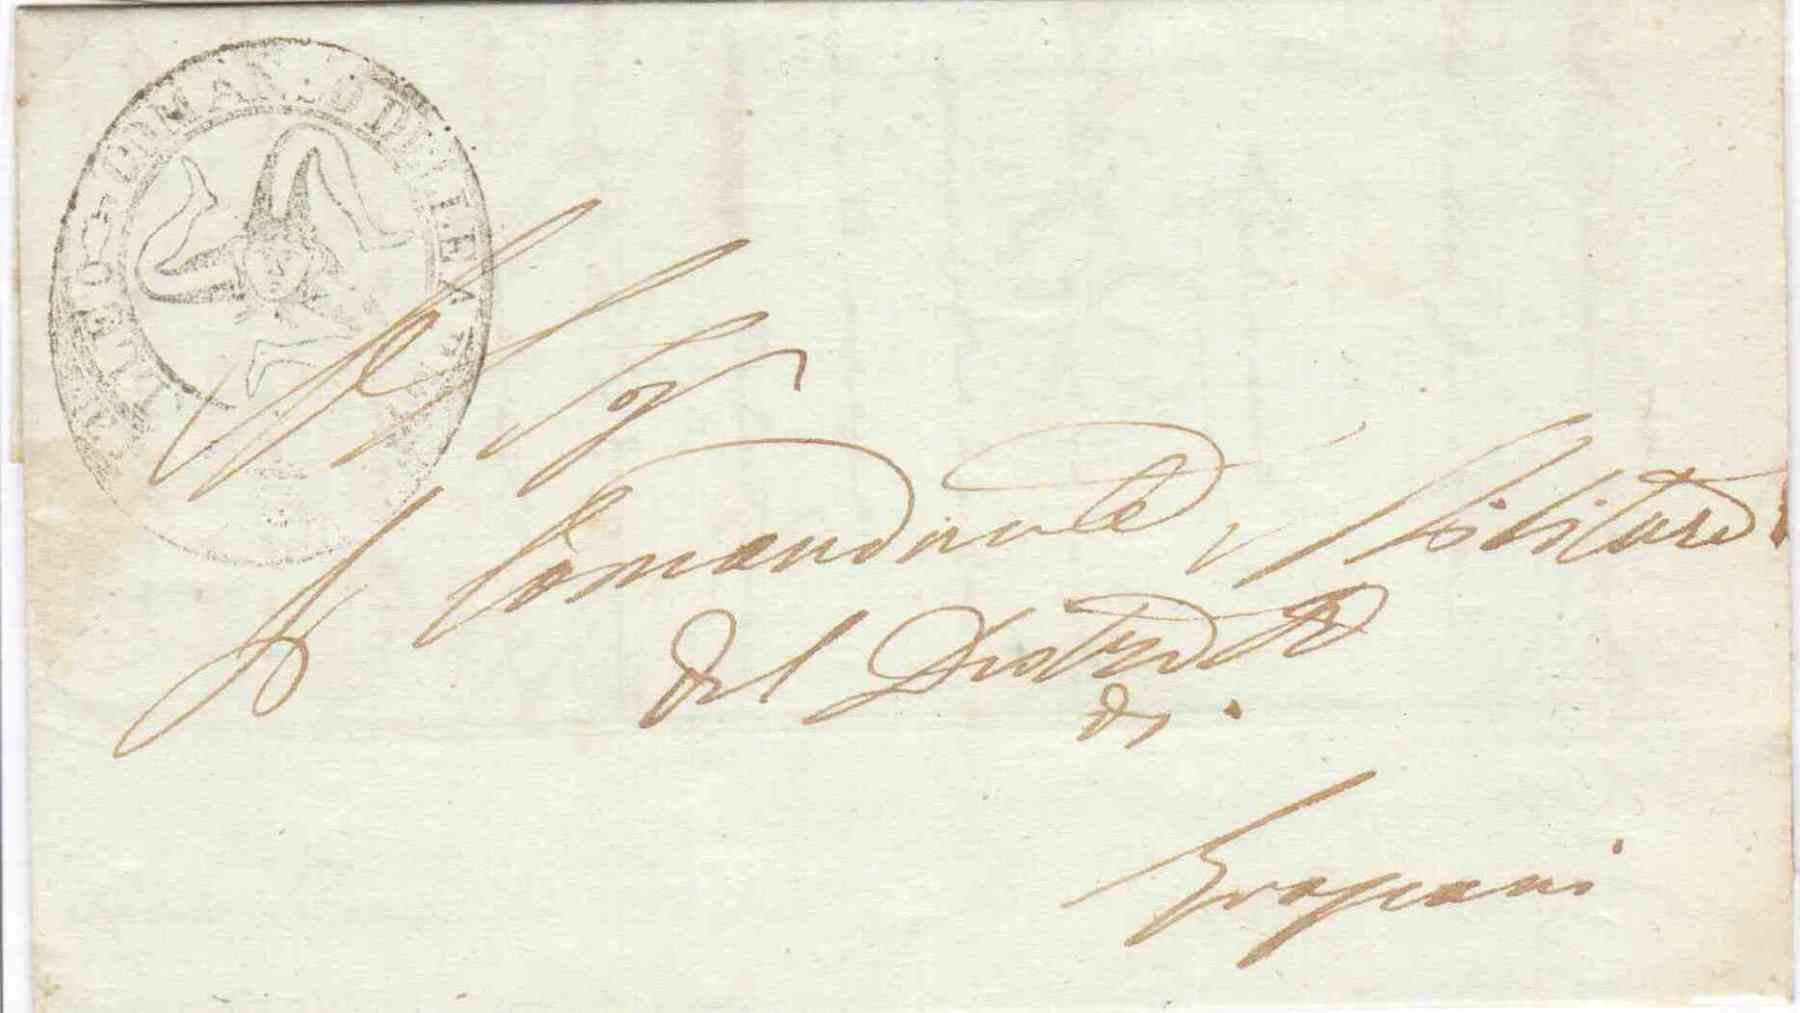 COMANDO DELLE
Al Sigr
Il Comandante Militare
del Distretto
di
Trapani